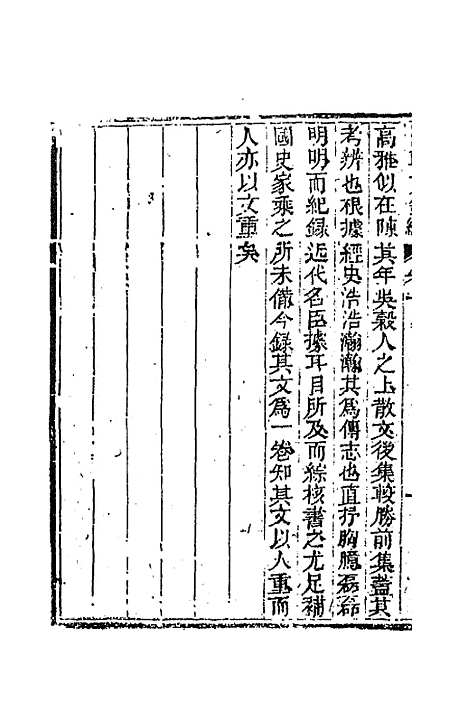 高雅似在陳其年吳穀人之上散文後集較勝前集蓋其
考辨也根據經史浩浩瀚瀚其為傳志也直抒胸臆磊磊
明明而紀錄近代名臣據耳目所及而綜核書之尤足補
國史家乘之所未備今錄其文為一卷知其文以人重而
人亦以文重矣